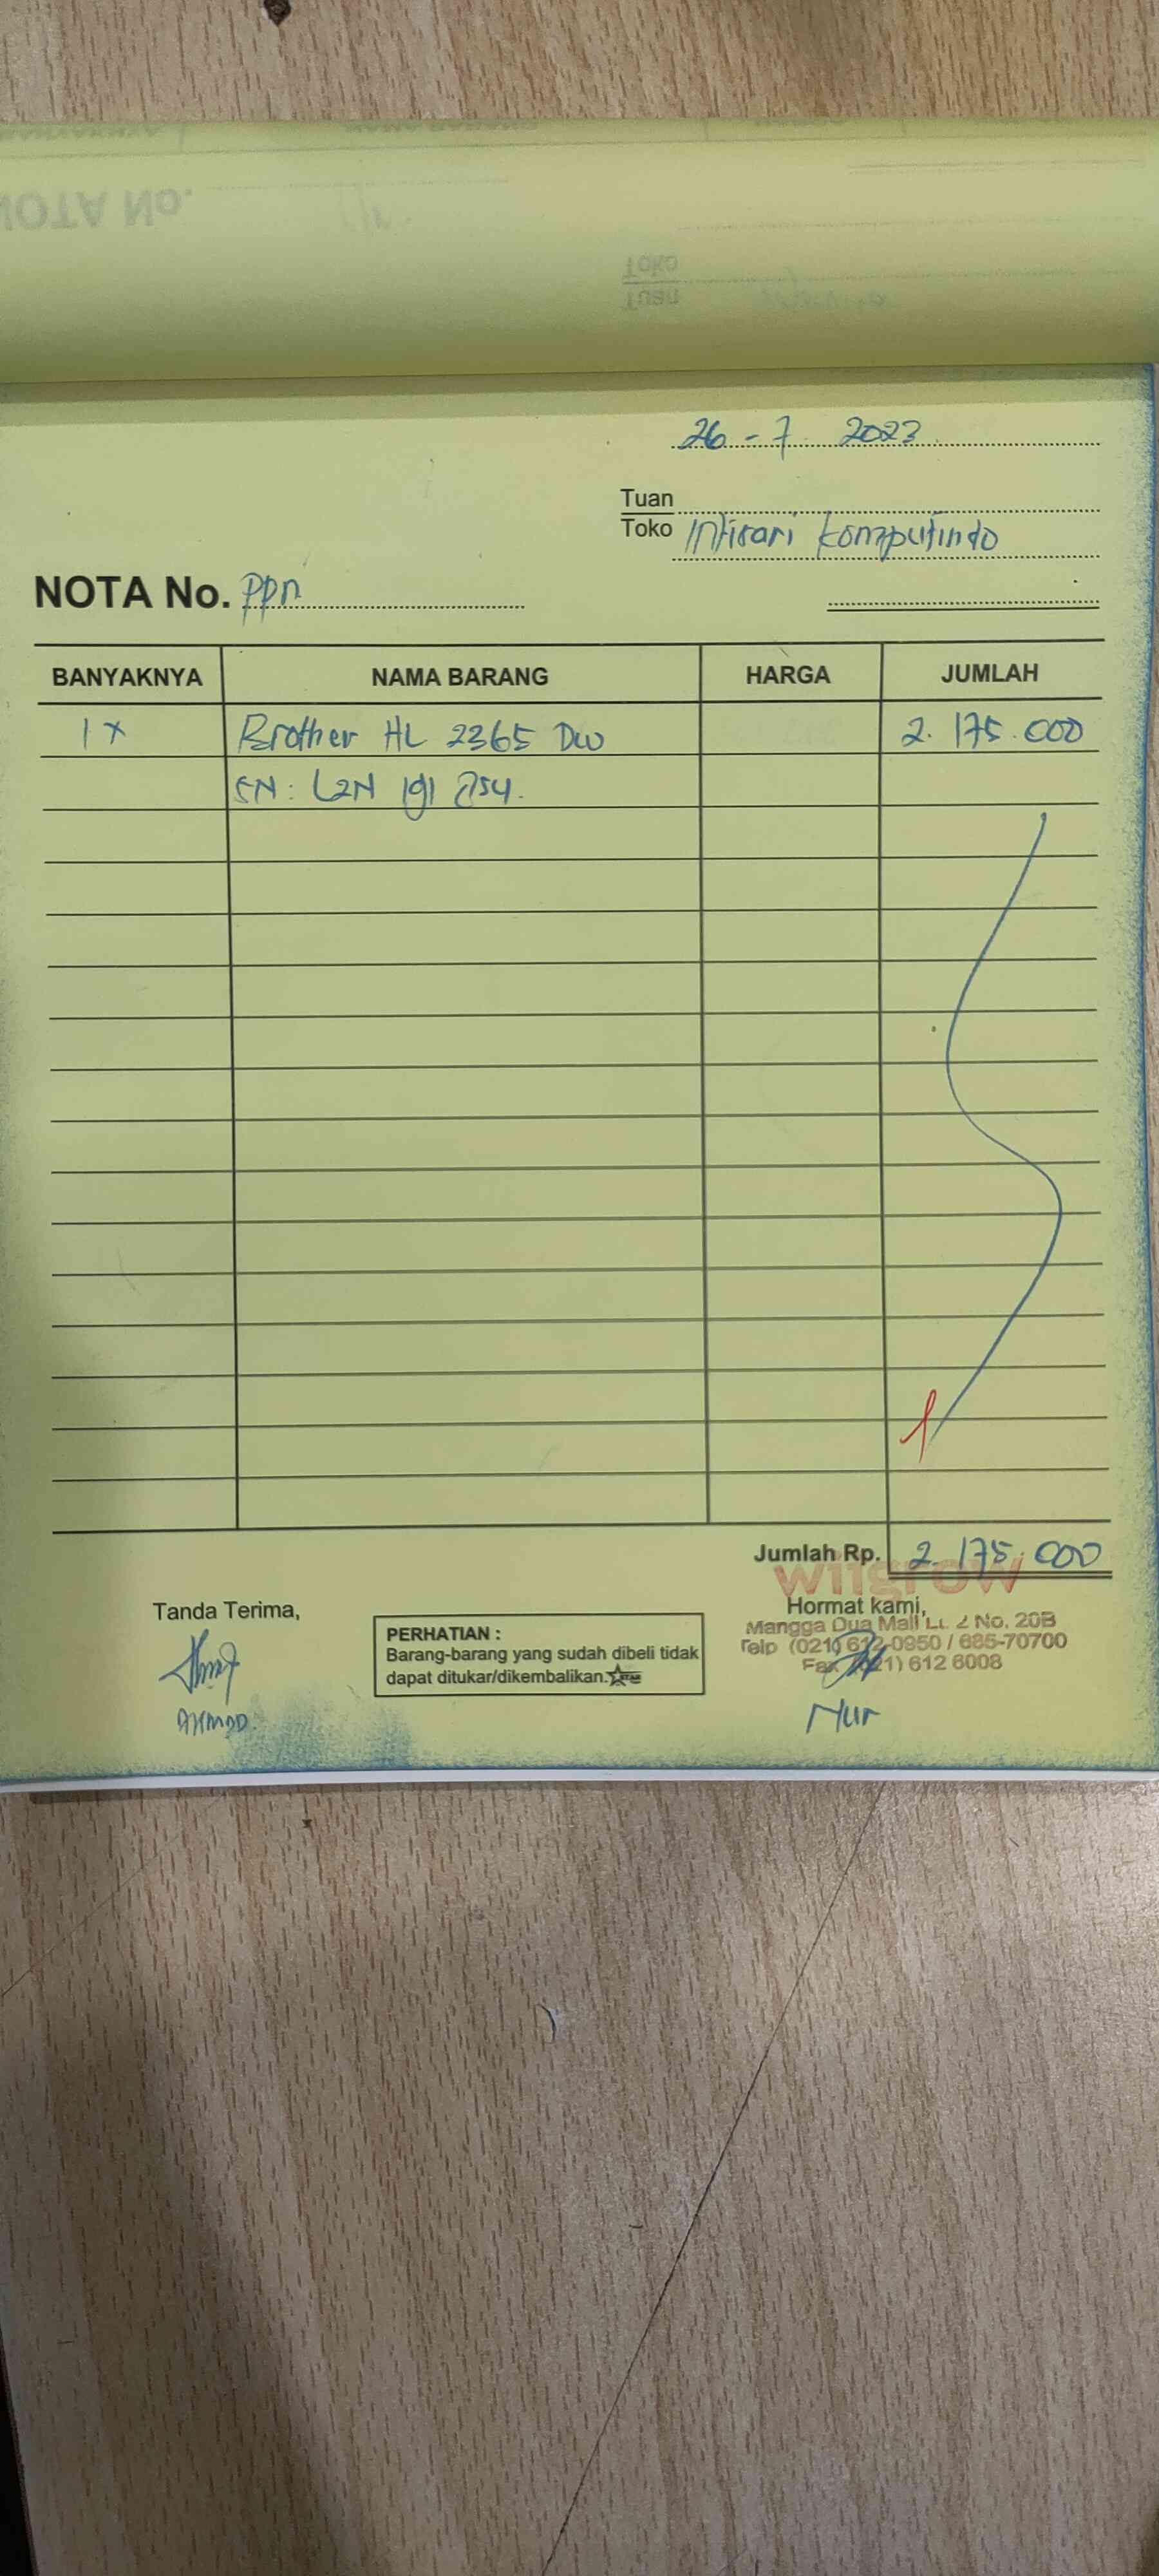 NOTA No.
Toko
Tuan
26 - 7 2023
Tuan
Toko Intisari Komputindo
NOTA No. PPn
BANYAKNYA NAMA BARANG HARGA JUMLAH
1 x Brother HL 2365 DW 2.175.000
SN:
Jumlah Rp. 2.175.000
witgrow
Tanda Terima, Hormat kami,
Mangga Dua Mall Lt. 2 No. 20B
Telp (021) 612-0950 / 685-70700
Fax (021) 612 6008
PERHATIAN :
Barang-barang yang sudah dibeli tidak
dapat ditukar/dikembalikan.
AHMAD.
Nur